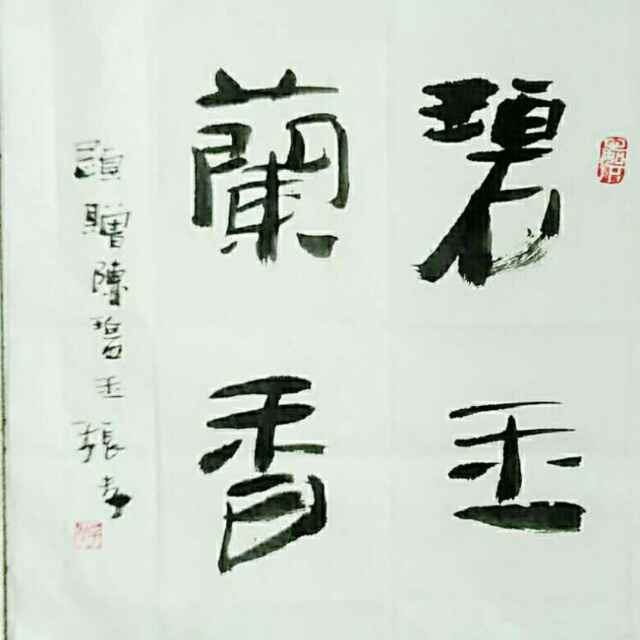 碧玉
蘭香
題贈陳碧玉 張